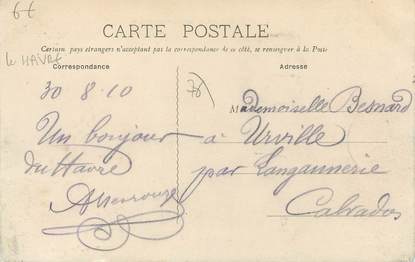 6€
le HAVRE
CARTE POSTALE
Certains pays étrangers n'acceptant pas la correspondance de ce côté, se renseigner à la Poste
Correspondance
Adresse
30 8.10
Un bonjour
du Havre
76
Mademoiselle Besnard
à Urville
par Langannerie
Calvados